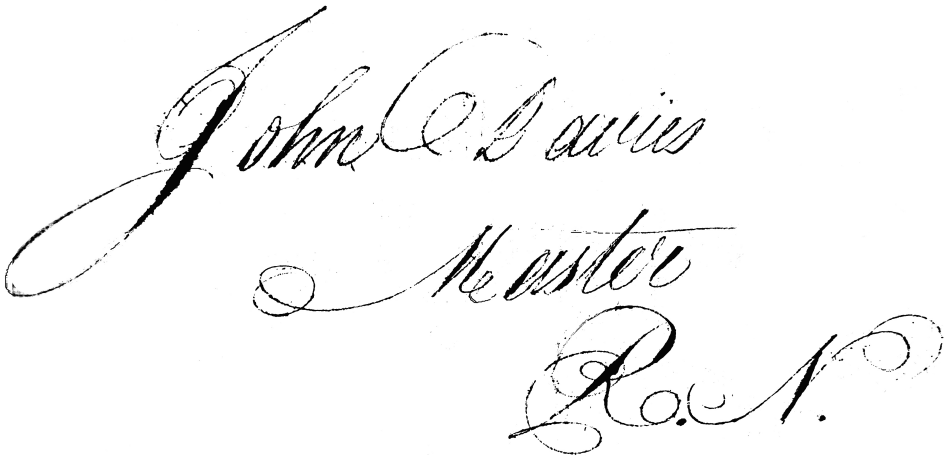 John Davies
Master
R.N.